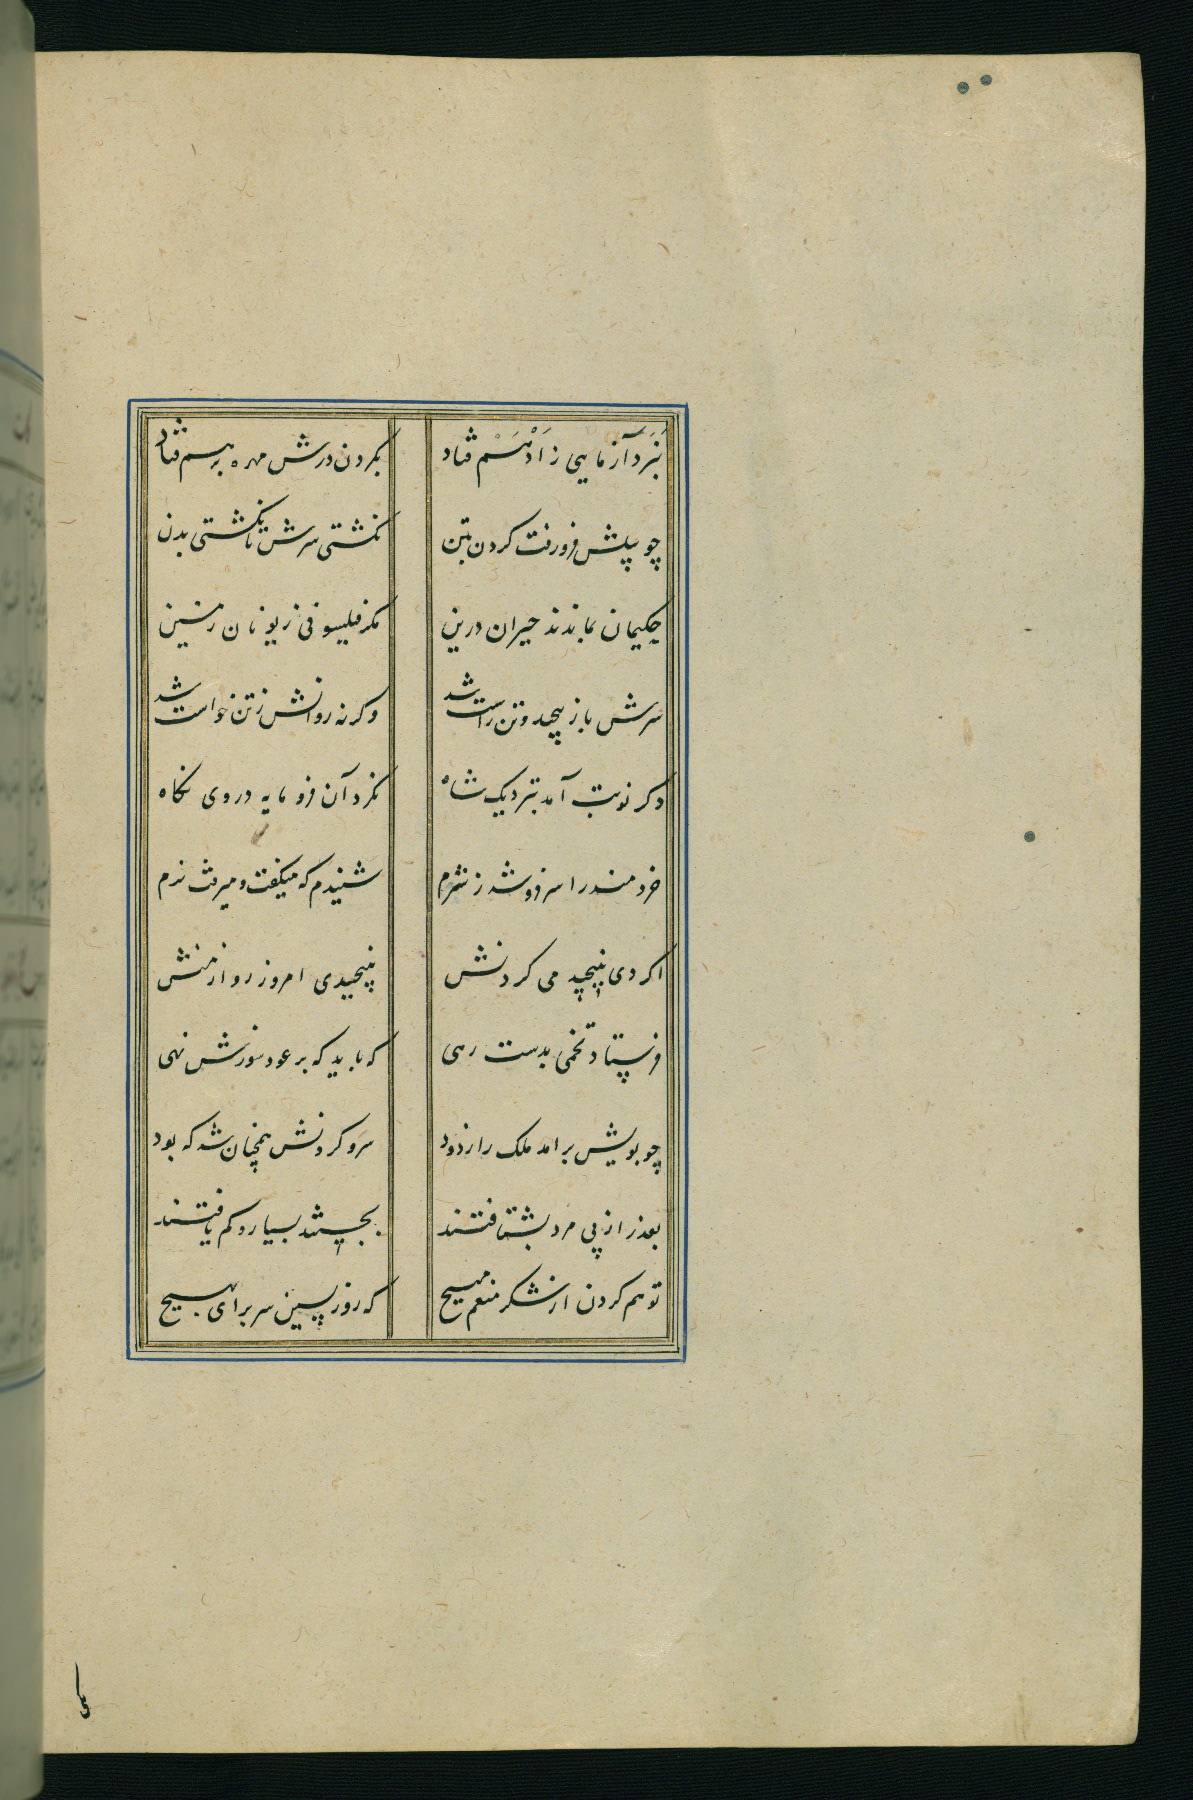 نبرد آزمایی ز ادهم فتاد بکردن درش مهره بر هم فتاد
چو پیلش فرو رفت کردن بتن نکشتی سرش تا نکشتی بدن
حکیمان بماندند حیران درین مکر فیلسوفی ز یونان زمین
سرش باز پیچید و تن راست شد وکرنه روانش ز تن خواست شد
دکر نوبت آمد بنزدیک شاه نکرد آن فرومایه در وی نکاه
خردمند را سر فرو شد ز شرم شنیدم که میکفت و میرفت نرم
اکر دی نپیچیدمی کردنش نپیچیدی امروز رو از منش
فرستاد تخمی بدست رهی که باید که بر عود سوزش نهی
چو بویش برامد ملک را ز دود سر و کردنش همچنان شد که بود
بعذر از پی مرد بشتافتند بجستند بسیار و کم یافتند
تو هم کردن از شکر منعم مپیچ که روز پسین سر برای بهیچ